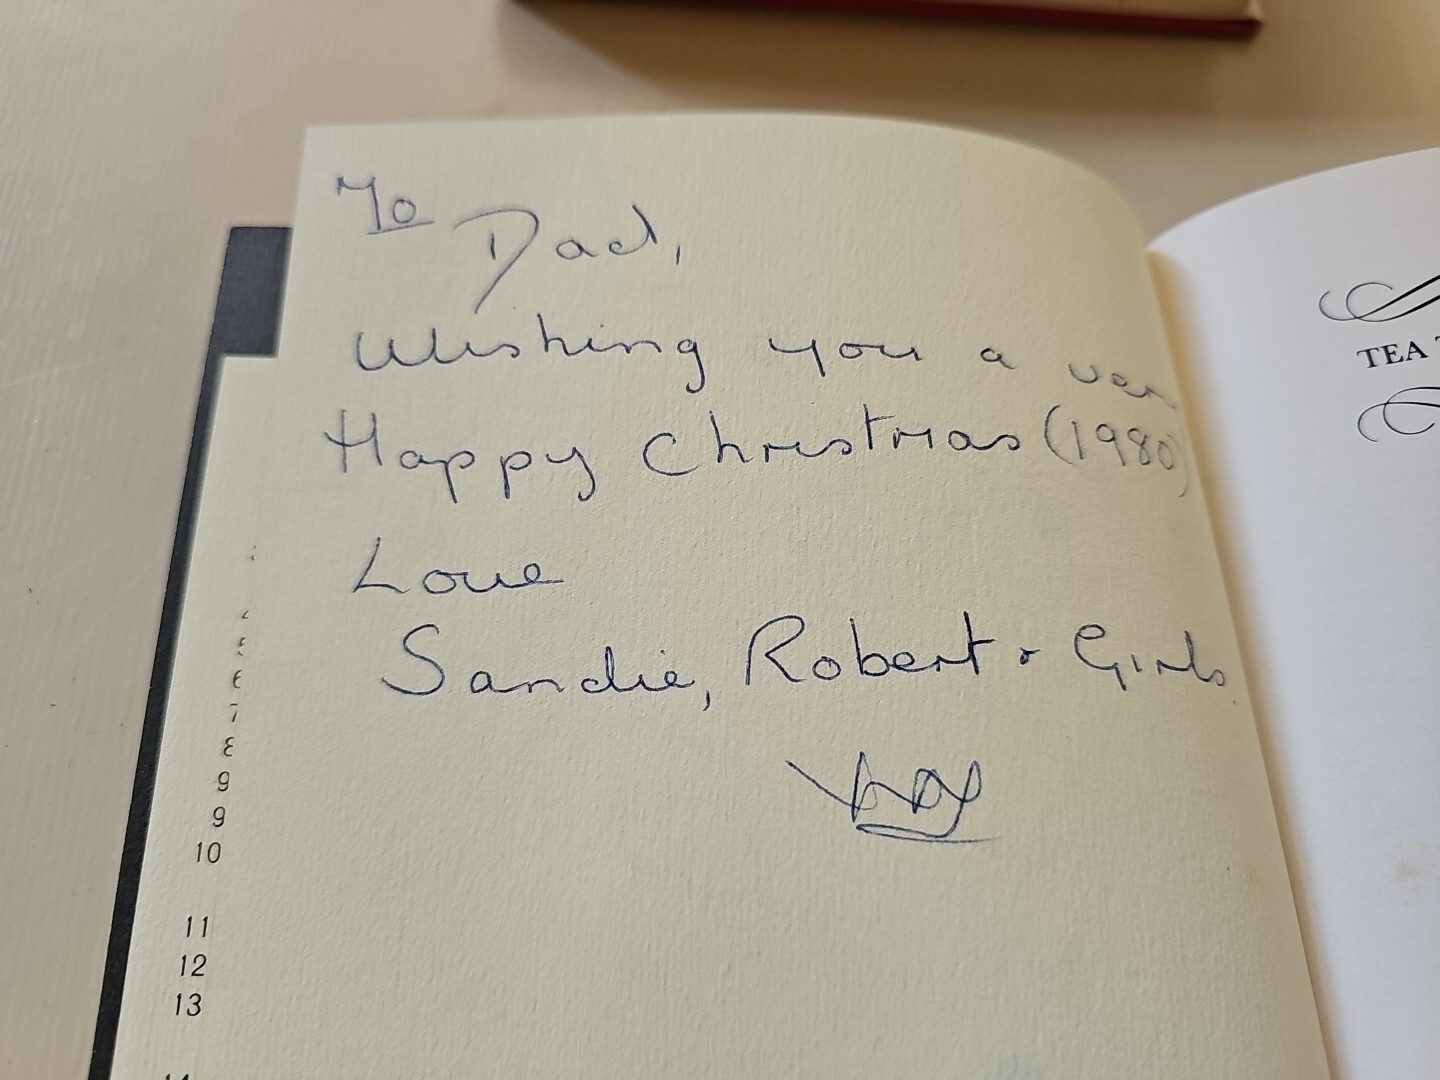 To Dad,
Wishing you a ver
Happy Christmas (1980)
Love
Sandie, Robert & Girls.
TEA
6
7
8
9
9
10
11
12
13
14